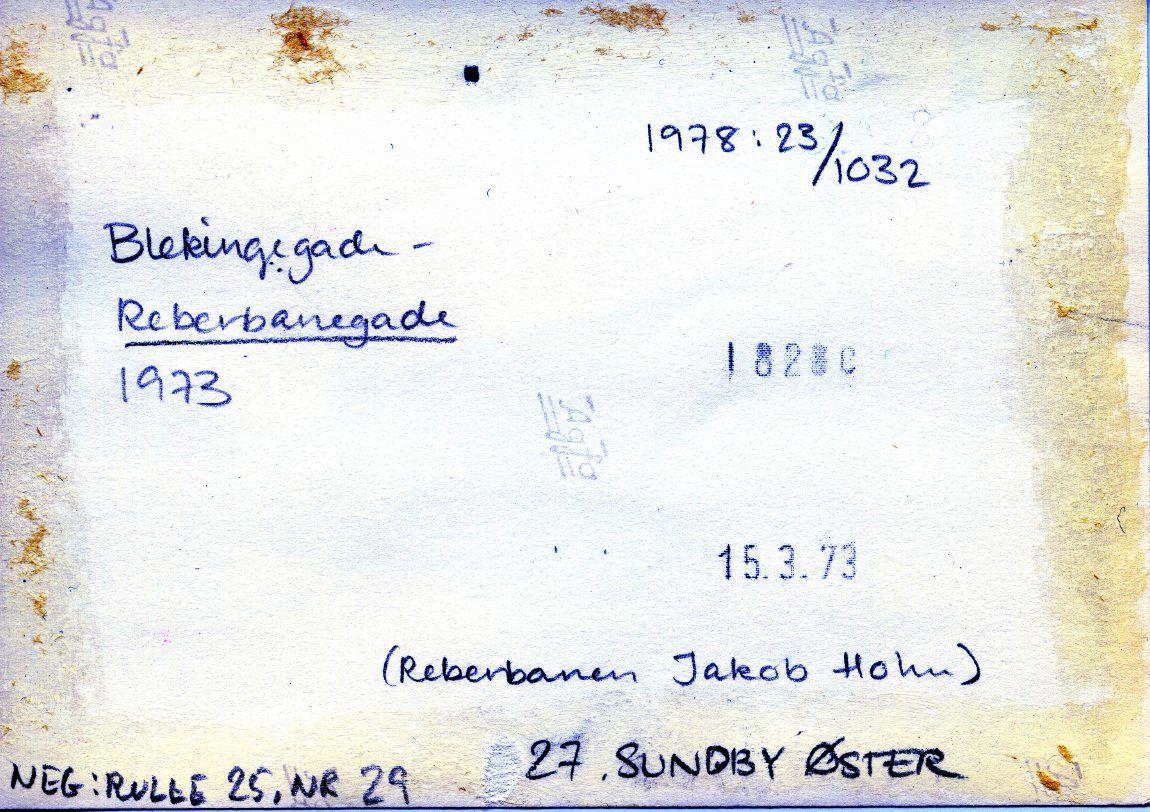 1978:23/1032
Blekingegade -
Reberbanegade
1973
15.3.73
(Reberbanen Jakob Holm)
27. SUNDBY ØSTER
NEG: RULLE 25, NR 29